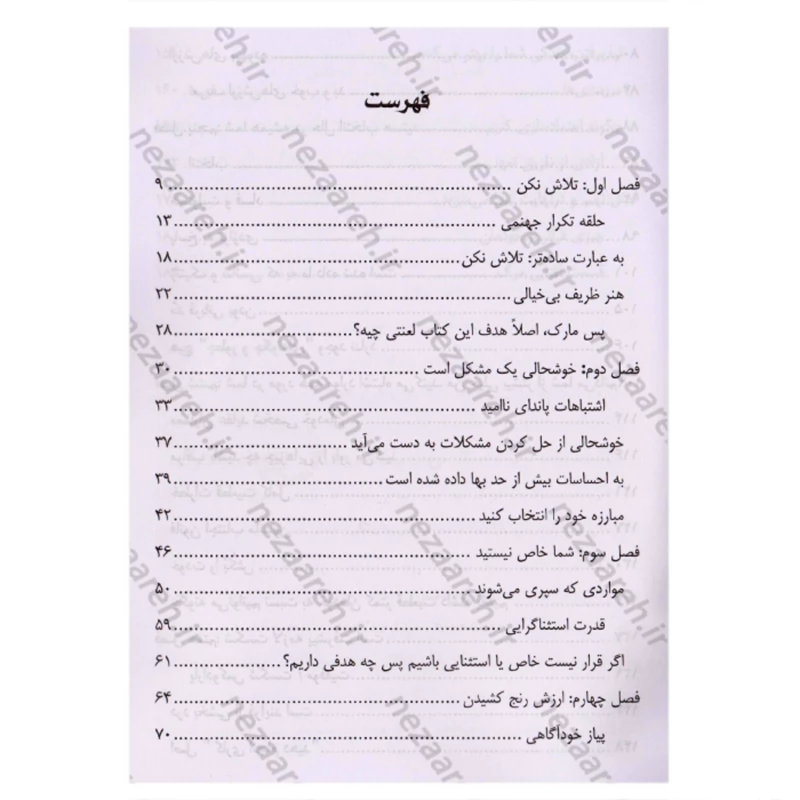 فهرست
فصل اول: تلاش نکن ........ ۹
حلقه تکرار جهنمی ........ ۱۳
به عبارت ساده‌تر: تلاش نکن ........ ۱۸
هنر ظریف بی‌خیالی ........ ۲۲
پس مارک، اصلاً هدف این کتاب لعنتی چیه؟ ........ ۲۸
فصل دوم: خوشحالی یک مشکل است ........ ۳۰
اشتباهات پاندای ناامید ........ ۳۳
خوشحالی از حل کردن مشکلات به دست می‌آید ........ ۳۷
به احساسات بیش از حد بها داده شده است ........ ۳۹
مبارزه خود را انتخاب کنید ........ ۴۲
فصل سوم: شما خاص نیستید ........ ۴۶
مواردی که سپری می‌شوند ........ ۵۰
قدرت استثناگرایی ........ ۵۹
اگر قرار نیست خاص یا استثنایی باشیم پس چه هدفی داریم؟ ........ ۶۱
فصل چهارم: ارزش رنج کشیدن ........ ۶۴
پیاز خودآگاهی ........ ۷۰
nezaareh.ir